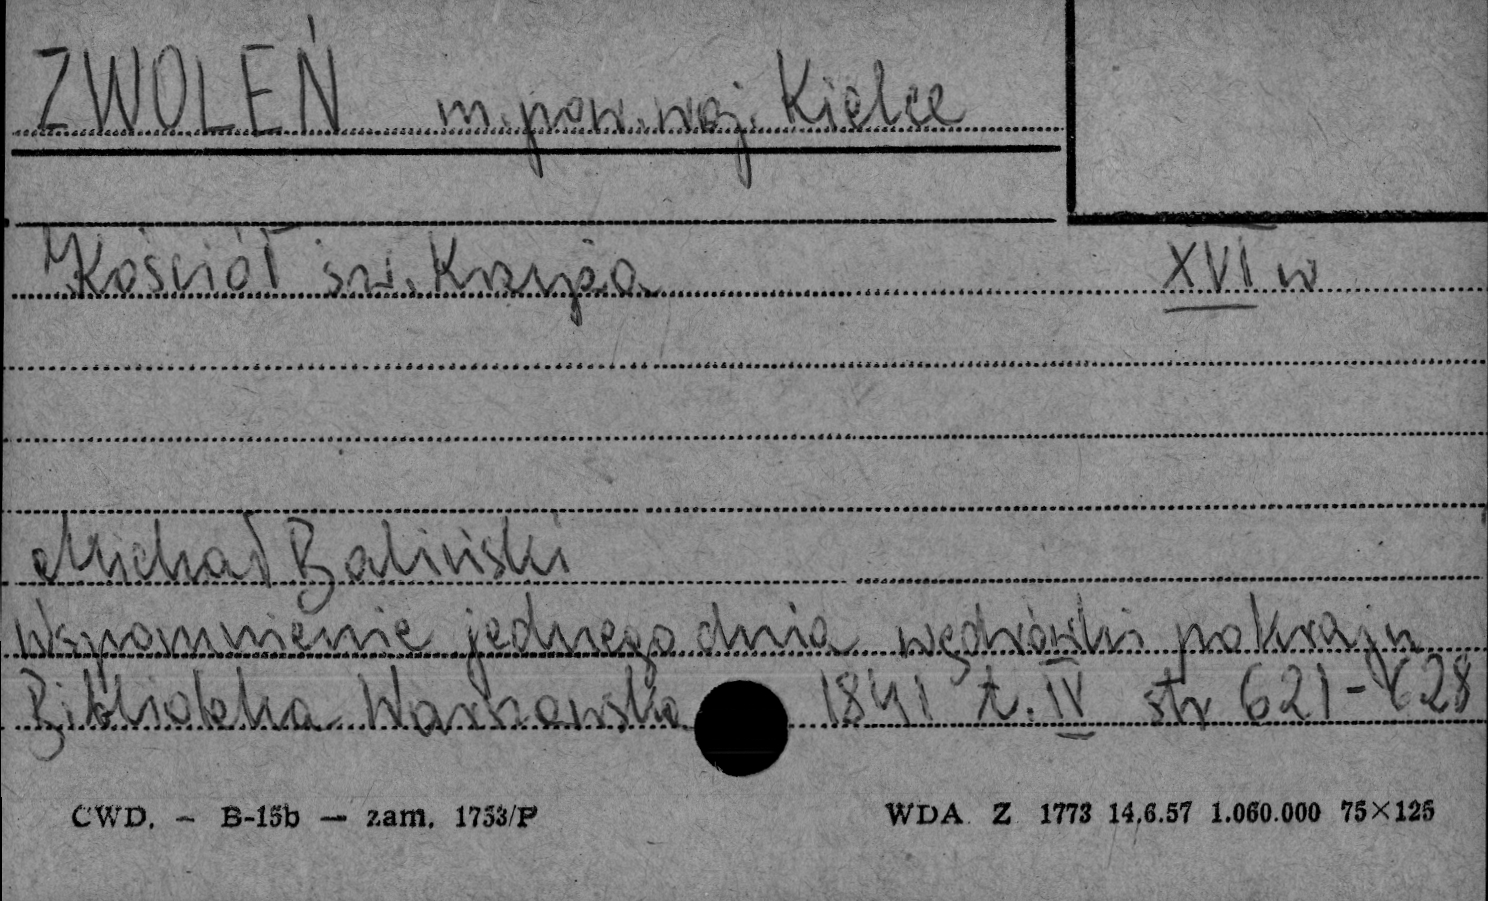 ZWOLEŃ m. pow. woj. Kielce
Kościół św. Krzyża XVI w
Michał Baliński
Wspomnienie jednego dnia wędrówki po kraju
Biblioteka Warszawska 1841 t. IV str 621-628
CWD. - B-15b - zam. 1753/P WDA Z 1773 14.6.57 1.060.000 75×125